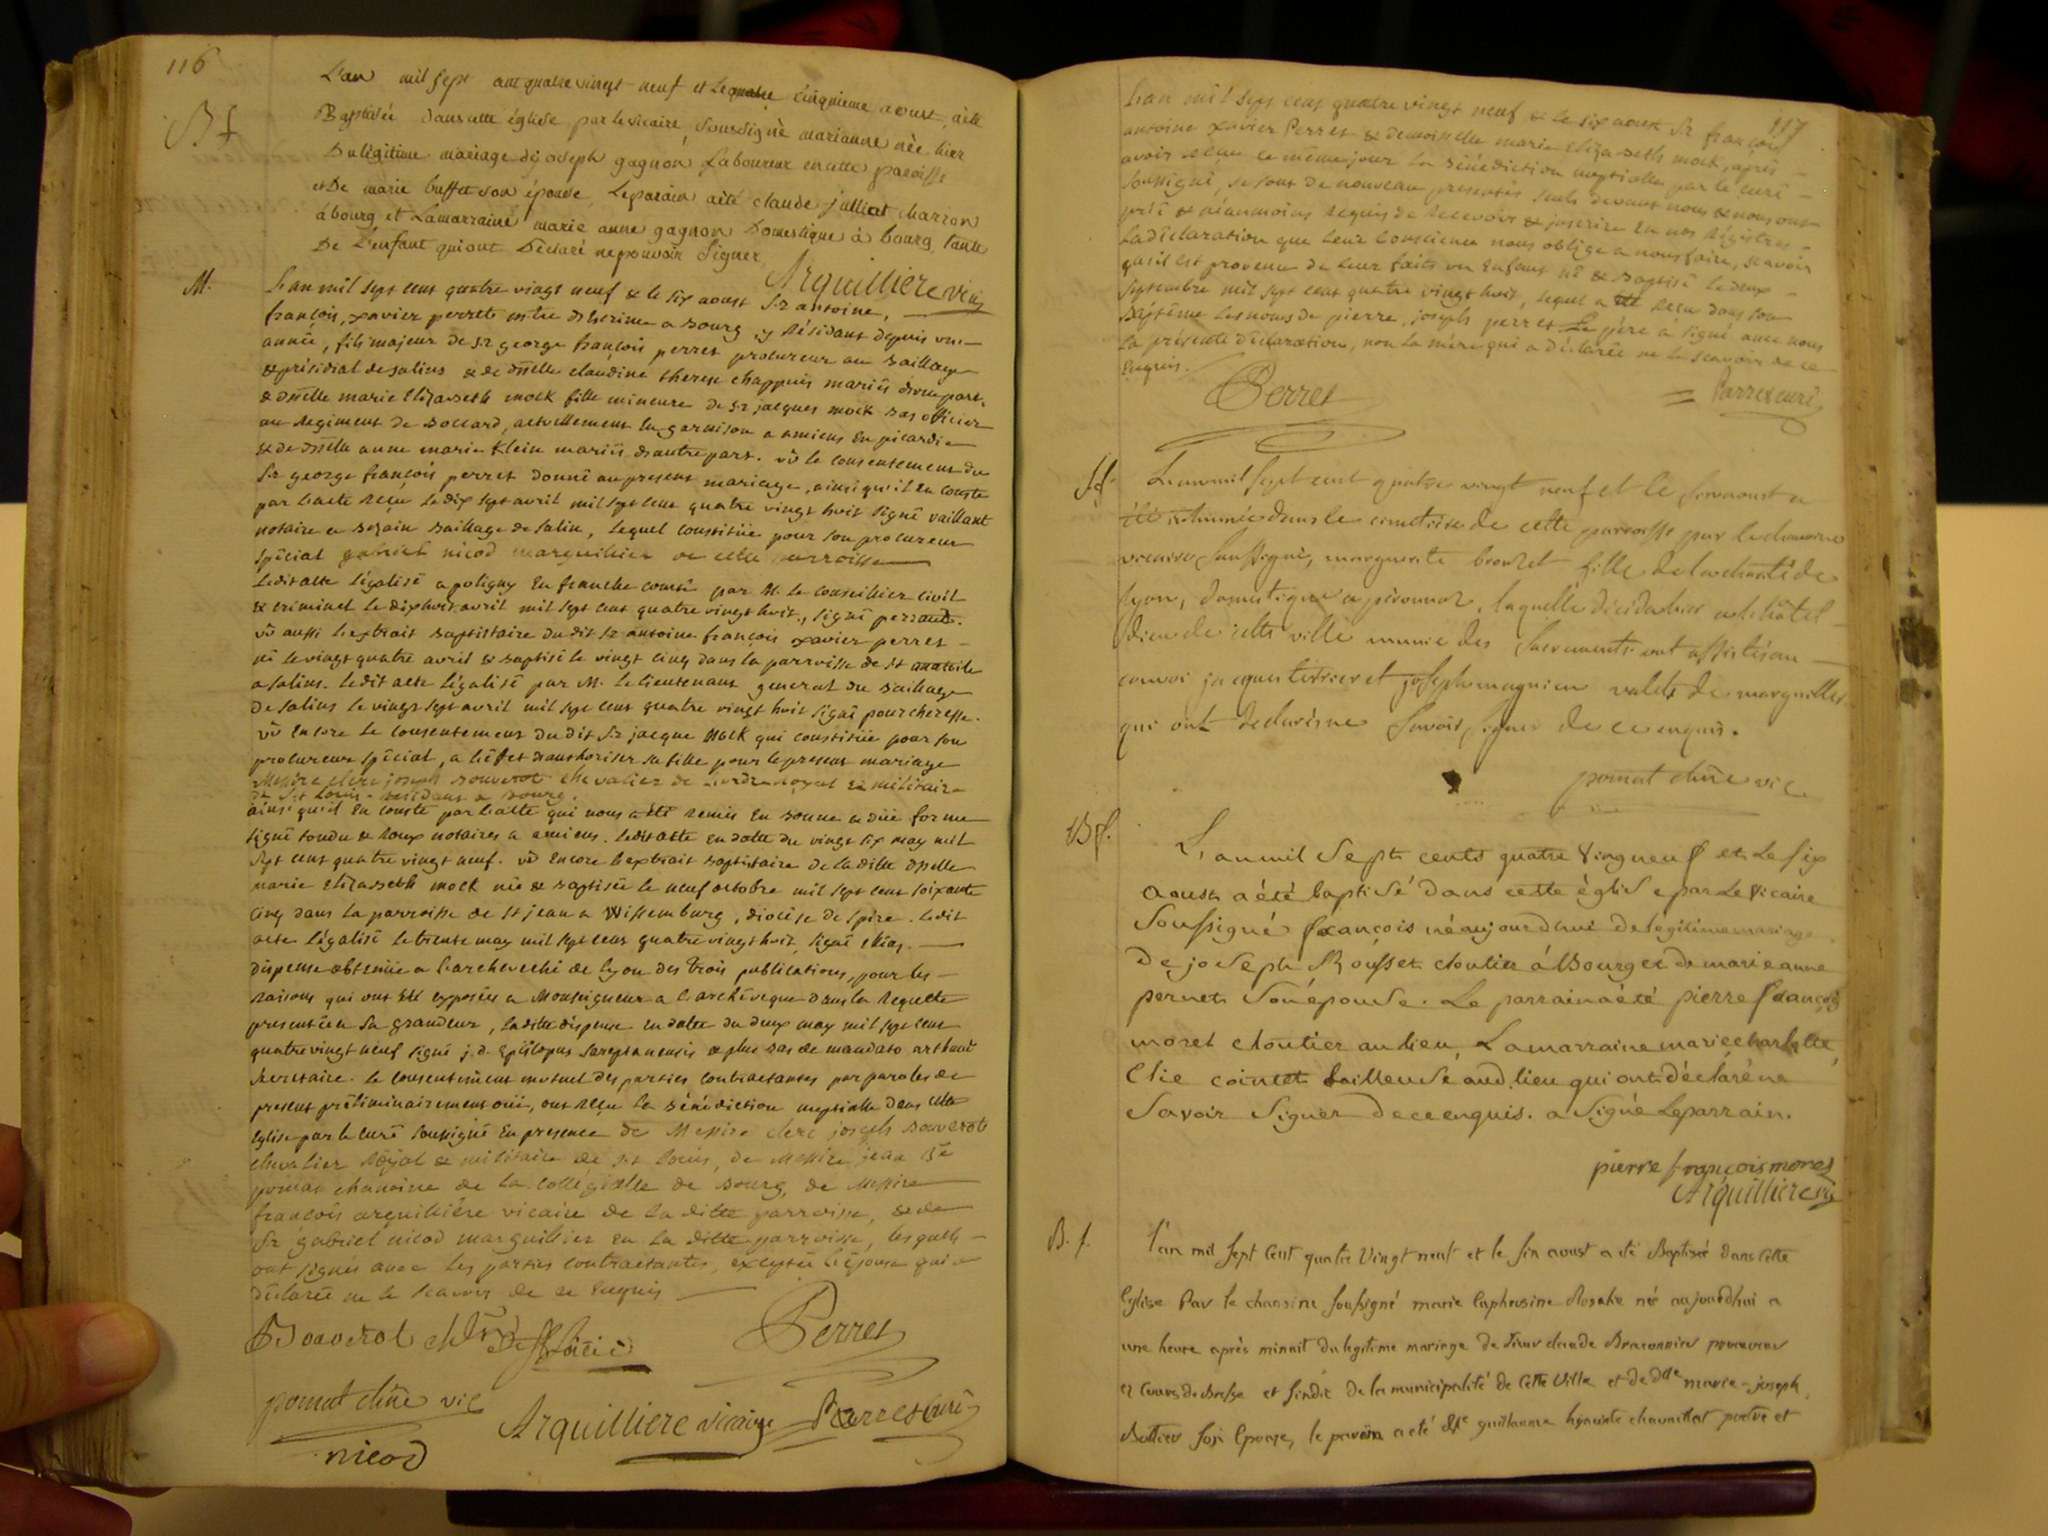 116
L'an mil sept cent quatre vingt neuf et le quatre cinquieme aoust, a été
Bf
Baptisée dans cette église par le vicaire soussigné marianne née hier
Du légitime mariage de joseph gagnon Laboureur en cette paroisse
et De marie buffet son épouse, Le parain a été claude julliat charron
à bourg et La marraine marie anne gagnon Domestique à bourg, tante
De L'enfant qui ont Déclaré ne pouvoir Signer
Arquilliere vic
M.
L'an mil sept cent quatre vingt neuf & le six aoust Sr antoine,
françois, xavier perret, mtre d'escrime a Bourg y Résidant depuis une
année, fils majeur de Sr george françois perret procureur au Bailliage
& présidial de salins & de dlle claudine therese chappuis mariés d'une part,
& dlle marie Elizabeth mock fille mineure de Sr jacques mock bas officier
au Regiment de Boccard, actuellement En garnison a amiens En picardie
& de dlle anne marie Klein mariés d'autre part. vû le consentement du
Sr george françois perret donné au present mariage, ainsi qu'il En conste
par l'acte Reçu le dix sept avril mil sept cent quatre vingt huit signé vaillant
notaire a Bezain Bailliage de salin, lequel constitüe pour son procureur
spécial gabriel nicod marguillier de cette parroisse
Ledit acte légalisé a poligny En franche comté par M. le conseillier civil
& criminel le dixhuit avril mil sept cent quatre vingt huit, signé
vû aussi l'extrait Baptistaire du dit Sr antoine françois xavier perret
né le vingt quatre avril & Baptisé le vingt cinq dans la parroisse de st anatoile
a salins. Ledit acte légalisé par M. le lieutenant general du Bailliage
de salins le vingt sept avril mil sept cent quatre vingt huit signé pourcheresse.
vû Encore le consentement du dit Sr jacque Mock qui constitüe pour son
procureur spécial, a l'effet d'authoriser sa fille pour le present mariage
Messire clere joseph Bouverot chevalier de l'ordre royal & militaire
de St Louis Résidant a Bourg.
ainsi qu'il En conste par l'acte qui nous a été Remis En Bonne & düe forme
signé & Roux notaires a amiens. ledit acte En datte du vingt six may mil
sept cent quatre vingt neuf. vû Encore l'extrait Baptistaire de la ditte dlle
marie Elizabeth mock née & Baptisée le neuf octobre mil sept cent soixante
cinq dans la parroisse de st jean a Wissemburg, diocèse de spire. ledit
acte légalisé le trente may mil sept cent quatre vingt huit, signé
dispense obtenüe a l'archeveché de lyon des trois publications, pour les
Raisons qui ont Eté exposées a Monseigneur a l'archêveque dans la Requette
presentée a sa grandeur, laditte dispense En datte du deux may mil sept cent
quatre vingt neuf signé j. d. Episcopus sareptanensis & plus bas de mandato
secretaire. le consentement mutuel des parties contractantes par paroles de
present préliminairement oüi, ont Reçu la Bénédiction nuptialle dans cette
Eglise par le curé soussigné En presence de Messire clere joseph Bouverot
chevalier Royal & militaire de st Louis, de Messire jean Bte
pomat chanoine de la collégialle de Bourg, de Messire
françois arquillière vicaire de la ditte parroisse, & de
Sr gabriel nicod marguillier En la ditte parroisse, lesquels
ont signés avec les parties contractantes, exceptée l'épouse qui a
déclarée ne le scavoir de ce Enquis
Bouverot chlr de St Louis
Perret
pomat chne vic
Arquilliere vicaire
Parret curé
nicod
117
L'an mil sept cent quatre vingt neuf & le six aoust Sr françois
antoine xavier Perret & demoiselle marie Elizabeth mock, après
avoir Reçue ce même jour la Bénédiction nuptialle par le curé
soussigné, se sont de nouveau presentés seuls devant nous & nous ont
prié & néanmoins Requis de Recevoir & inscrire En nos Régistres
la déclaration que leur conscience nous oblige a nous faire, scavoir
qu'il est provenu de leur faits un Enfant né & Baptisé le deux
septembre mil sept cent quatre vingt huit, lequel a été Reçu dans son
Baptême les noms de pierre, joseph perret. Le père a signé avec nous
la présente déclaration, non la mère qui a déclarée ne le scavoir de ce
Enquis.
Perret
Parret curé
Sf.
L'an mil sept cent quatre vingt neuf et le six aoust a
été inhumée dans le cimetiere de cette parroisse par le chanoine
vicaire soussigné, marguerite fille de la charité de
lyon, domestique a peronnat, laquelle décéda hier a l'hôtel
dieu de cette ville munie des sacrements ont assistés au
convoi jacques terrier et joseph magnien valets de marguillier
qui ont déclaré ne savoir signer de ce enquis.
pomat chne vic
Bf.
L'an mil Sept cents quatre Vingt neuf et Le Six
aoust a été baptisé dans cette église par Le Vicaire
Soussigné françois né aujourdhui de legitime mariage
De joseph Rousset cloutier à Bourg et de marie anne
pernet Son épouse. Le parrain a été pierre françois
moret cloutier au dieu, La marraine marie charlotte
Elie cointet tailleuse aud. lieu qui ont déclaré ne
Savoir Signer de ce enquis. a Signé Le parrain.
pierre françois moret
Arquilliere vic
B. f.
L'an mil Sept Cent quatre Vingt neuf et le Six aoust a été Baptisée dans Cette
Eglise Par le chanoine soussigné marie Euphrosine Rosalie née aujourdhui a
une heure après minuit du legitime mariage de Sieur claude Braconnier procureur
es Cours de Bresse et Sindic de la municipalité de Cette Ville et de Dlle marie-joseph
Bottier son Epouse, le parain a été Mre guillaume hyacinte chaunillat pretre et